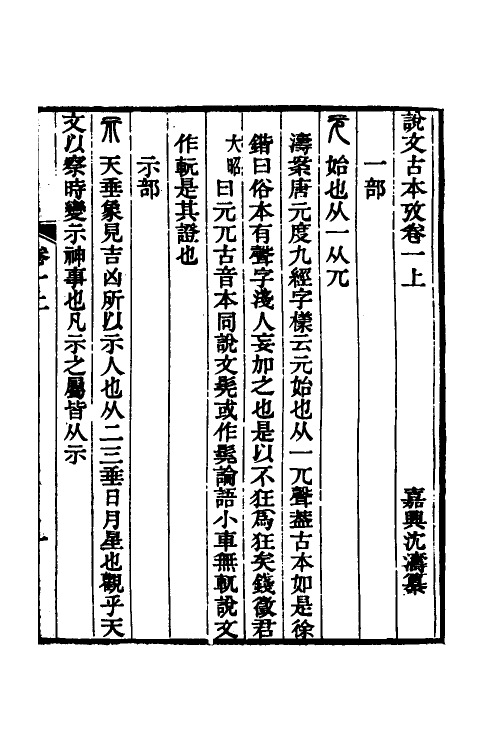 說文古本攷卷一上
嘉興沈濤纂
一部
元 始也从一从兀
濤案唐元度九經字樣云元始也从一兀聲葢古本如是徐
鍇曰俗本有聲字淺人妄加之也是以不狂爲狂矣錢徵君
大昭曰元兀古音本同說文髡或作髨論語小車無軏說文
作𨊠是其證也
示部
示 天垂象見吉凶所以示人也从二三垂日月星也觀乎天
文以察時變示神事也凡示之屬皆从示
卷一上
一